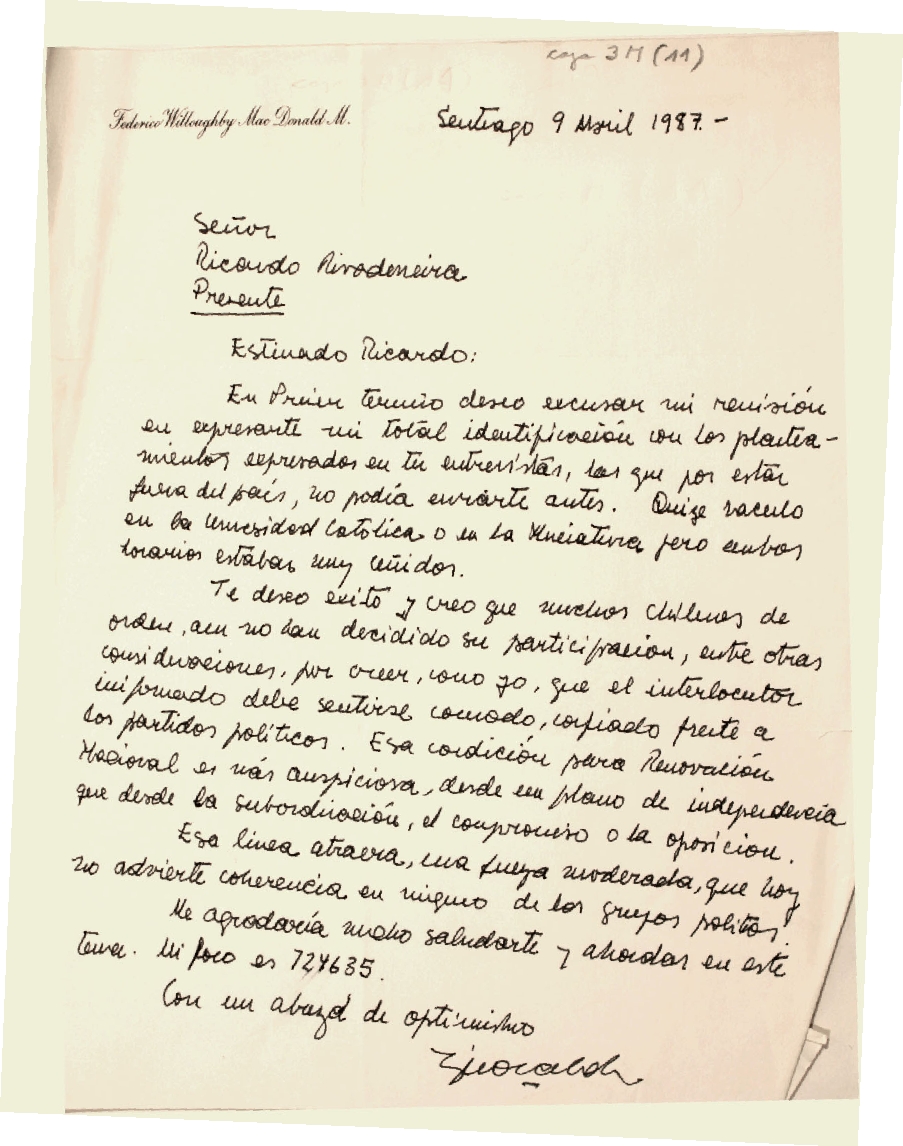 caja 3M (11)
Federico Willoughby Mac Donald M.
Santiago 9 Abril 1987.-
Señor
Ricardo Rivadeneira
Presente
Estimado Ricardo:
En Primer termino deseo excusar mi remisión
en expresarte mi total identificación con los plantea-
mientos expresados en tu entrevistas, los que por estar
fuera del país, no podía enviarte antes. Quize hacerlo
en la Universidad Católica o en la Iniciativa pero ambos
horarios estaban muy ceñidos.
Te deseo exito y creo que muchos chilenos de
orden, aun no han decidido su participacion, entre otras
consideraciones, por creer, como yo, que el interlocutor
informado debe sentirse comodo, confiado frente a
los partidos políticos. Esa condición para Renovación
Nacional es más auspiciosa, desde un plano de independencia
que desde la subordinación, el compromiso o la oposicion.
Esa linea atraera, una fuerza moderada, que hoy
no advierte coherencia en ninguno de los grupos politicos.
Me agradaría mucho saludarte y ahondar en este
tema. Mi fono es 724635.
Con un abrazo de optimismo